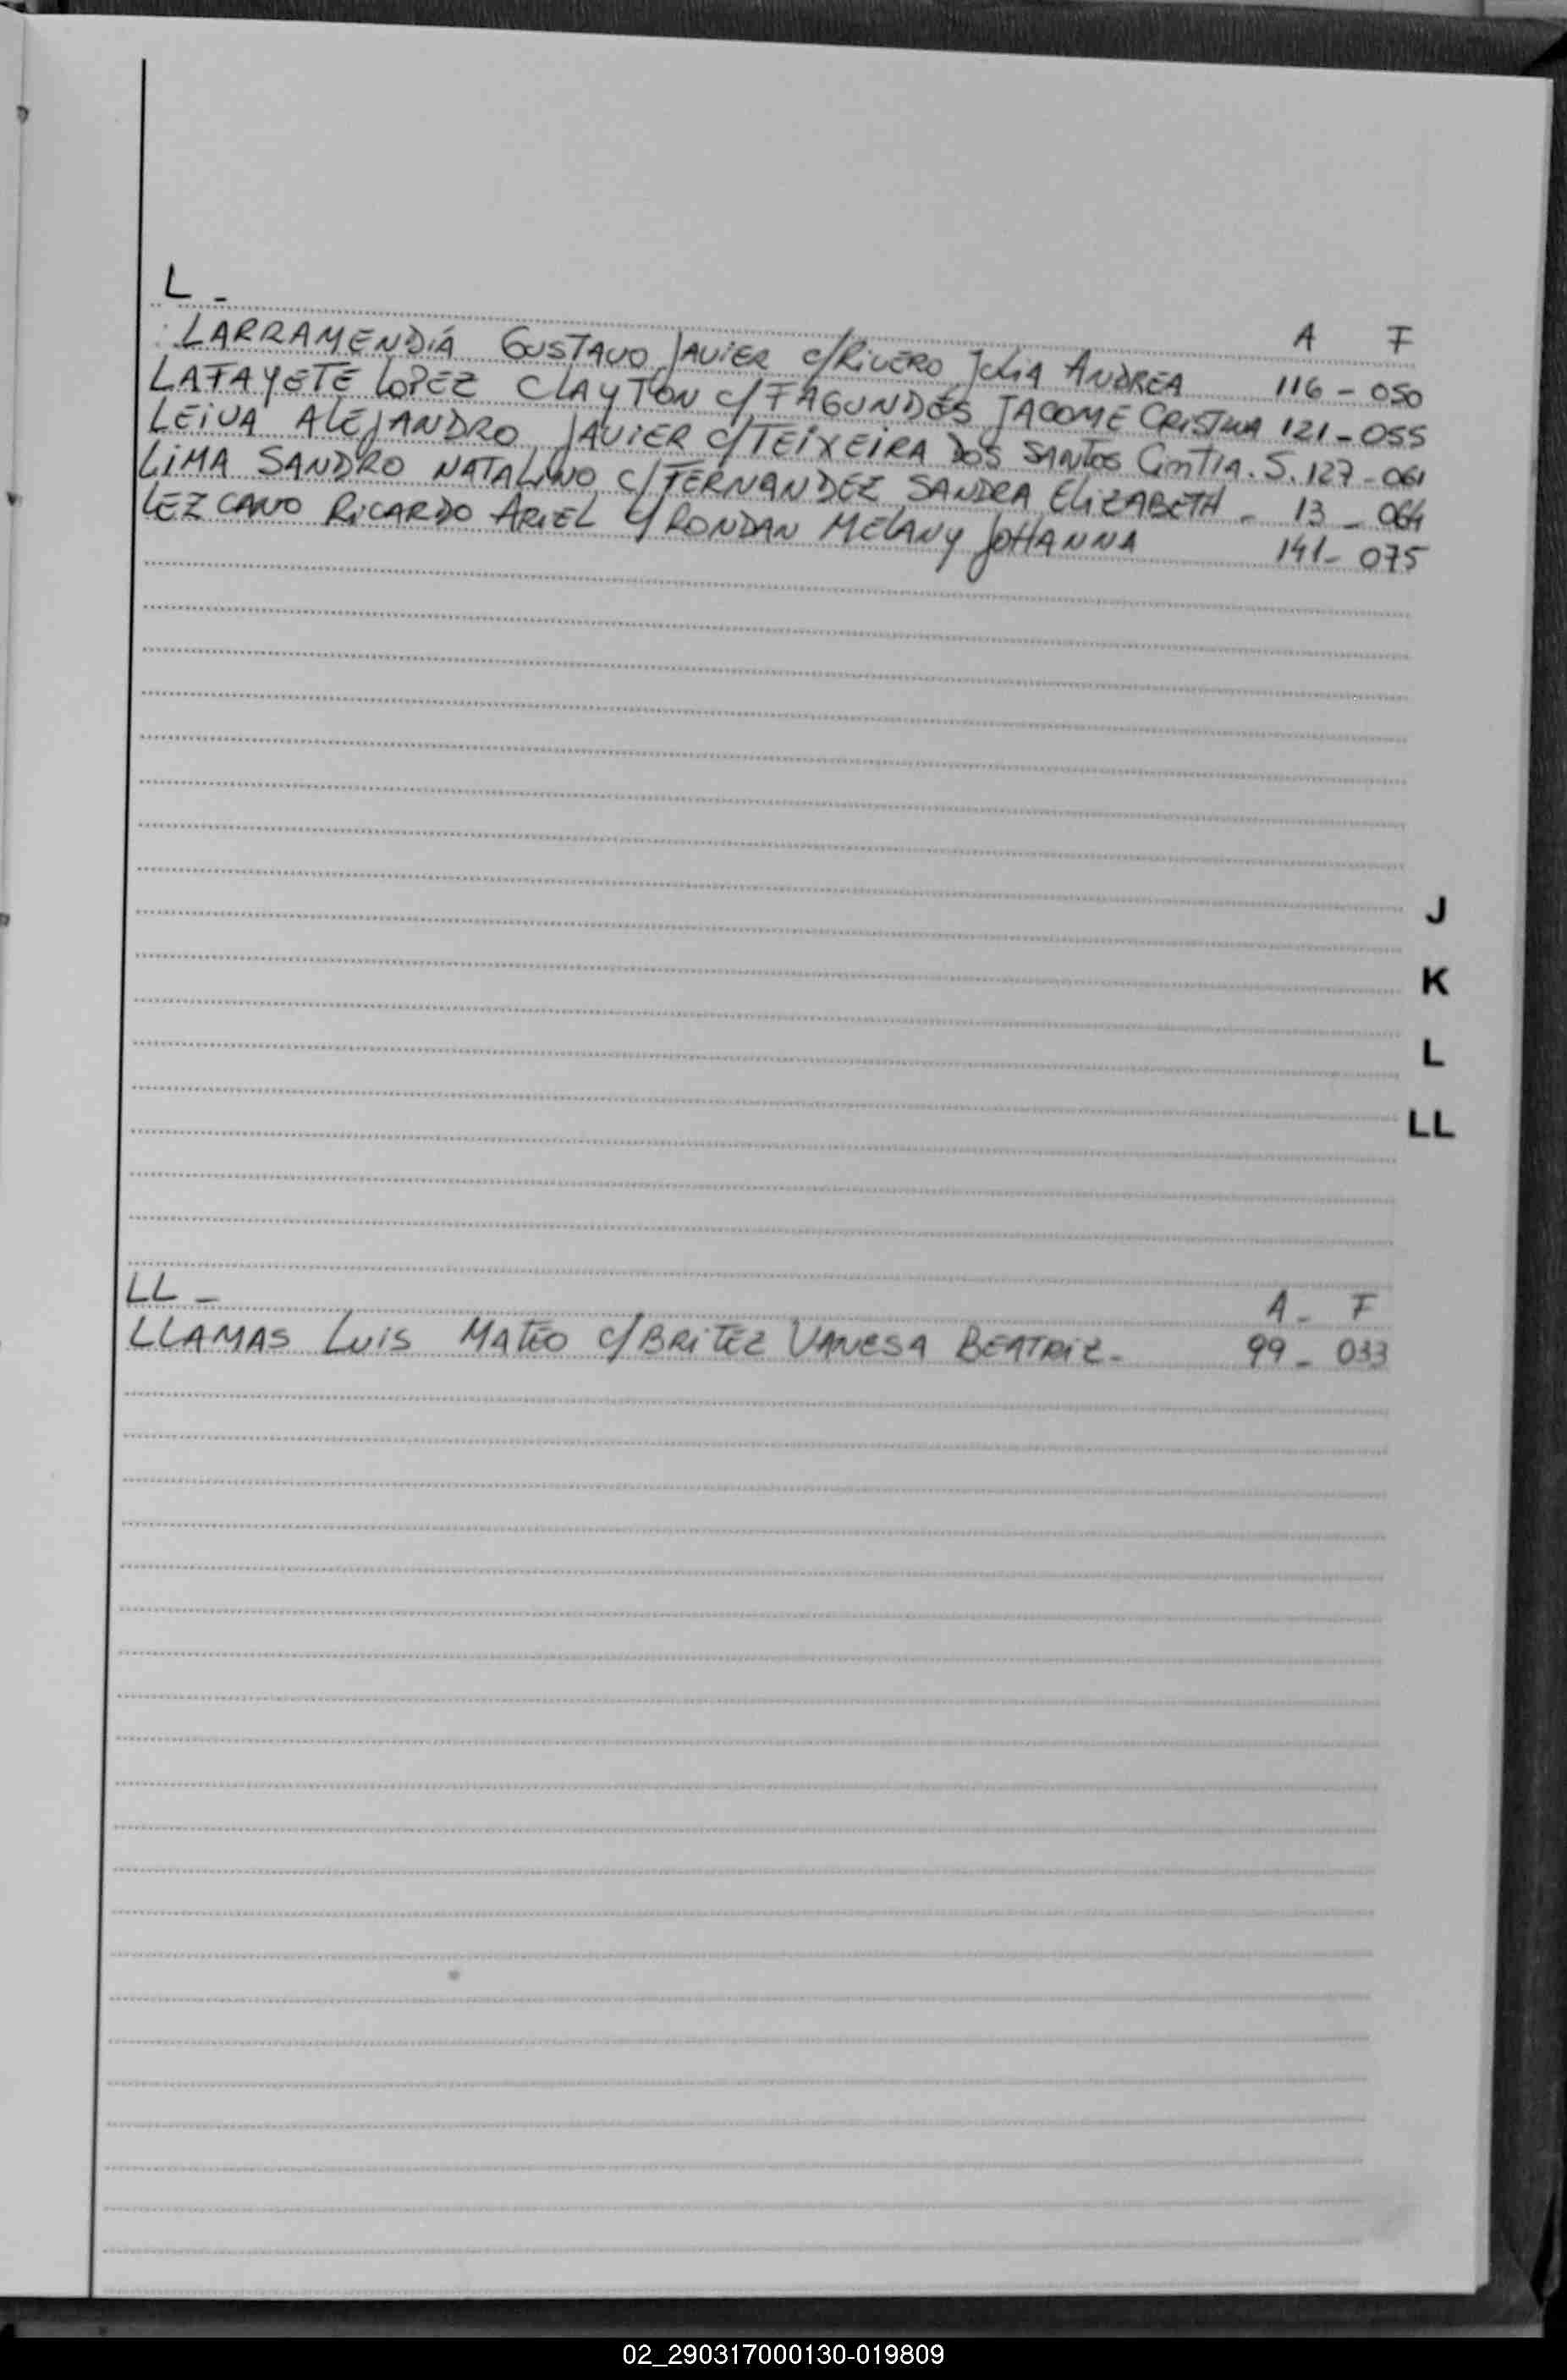 L -
A F
LARRAMENDIÁ GUSTAVO JAVIER c/RIVERO JULIA ANDREA 116 - 050
LAFAYETE LOPEZ CLAYTON c/FAGUNDES JACOME CRISTINA 121 - 055
LEIVA ALEJANDRO JAVIER c/TEIXEIRA DOS SANTOS CINTIA. S. 127 - 061
LIMA SANDRO NATALINO c/FERNANDEZ SANDRA ELIZABETH - 13 - 064
LEZCANO RICARDO ARIEL c/RONDAN MELANY JOHANNA 141 - 075
J
K
L
LL
LL -
A - F
LLAMAS LUIS MATEO c/BRITEZ VANESA BEATRIZ - 99 - 033
02_290317000130-019809